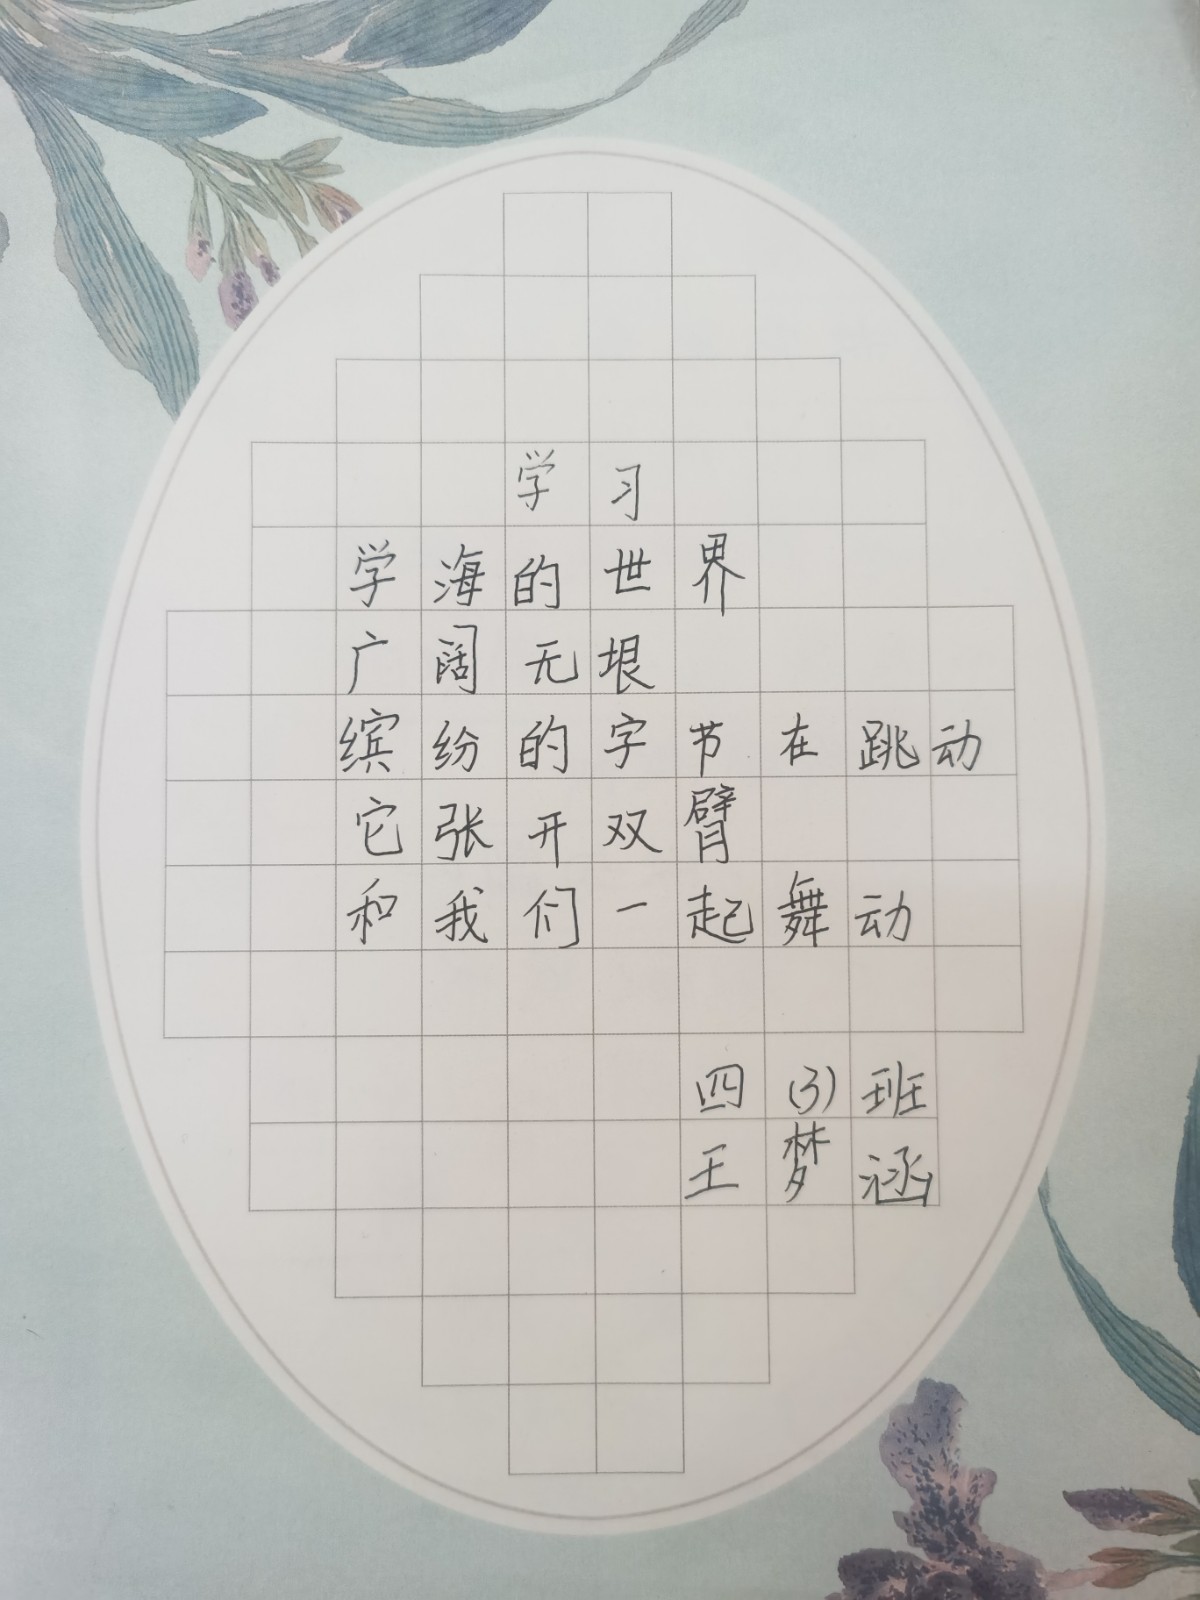 学习
学海的世界
广阔无垠
缤纷的字节在跳动
它张开双臂
和我们一起舞动
四(3)班
王梦涵